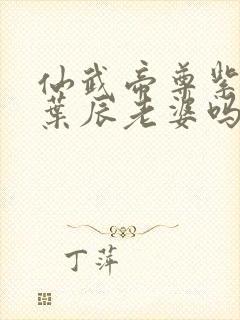 仙武帝尊紫
葉辰老婆吗
丁萍